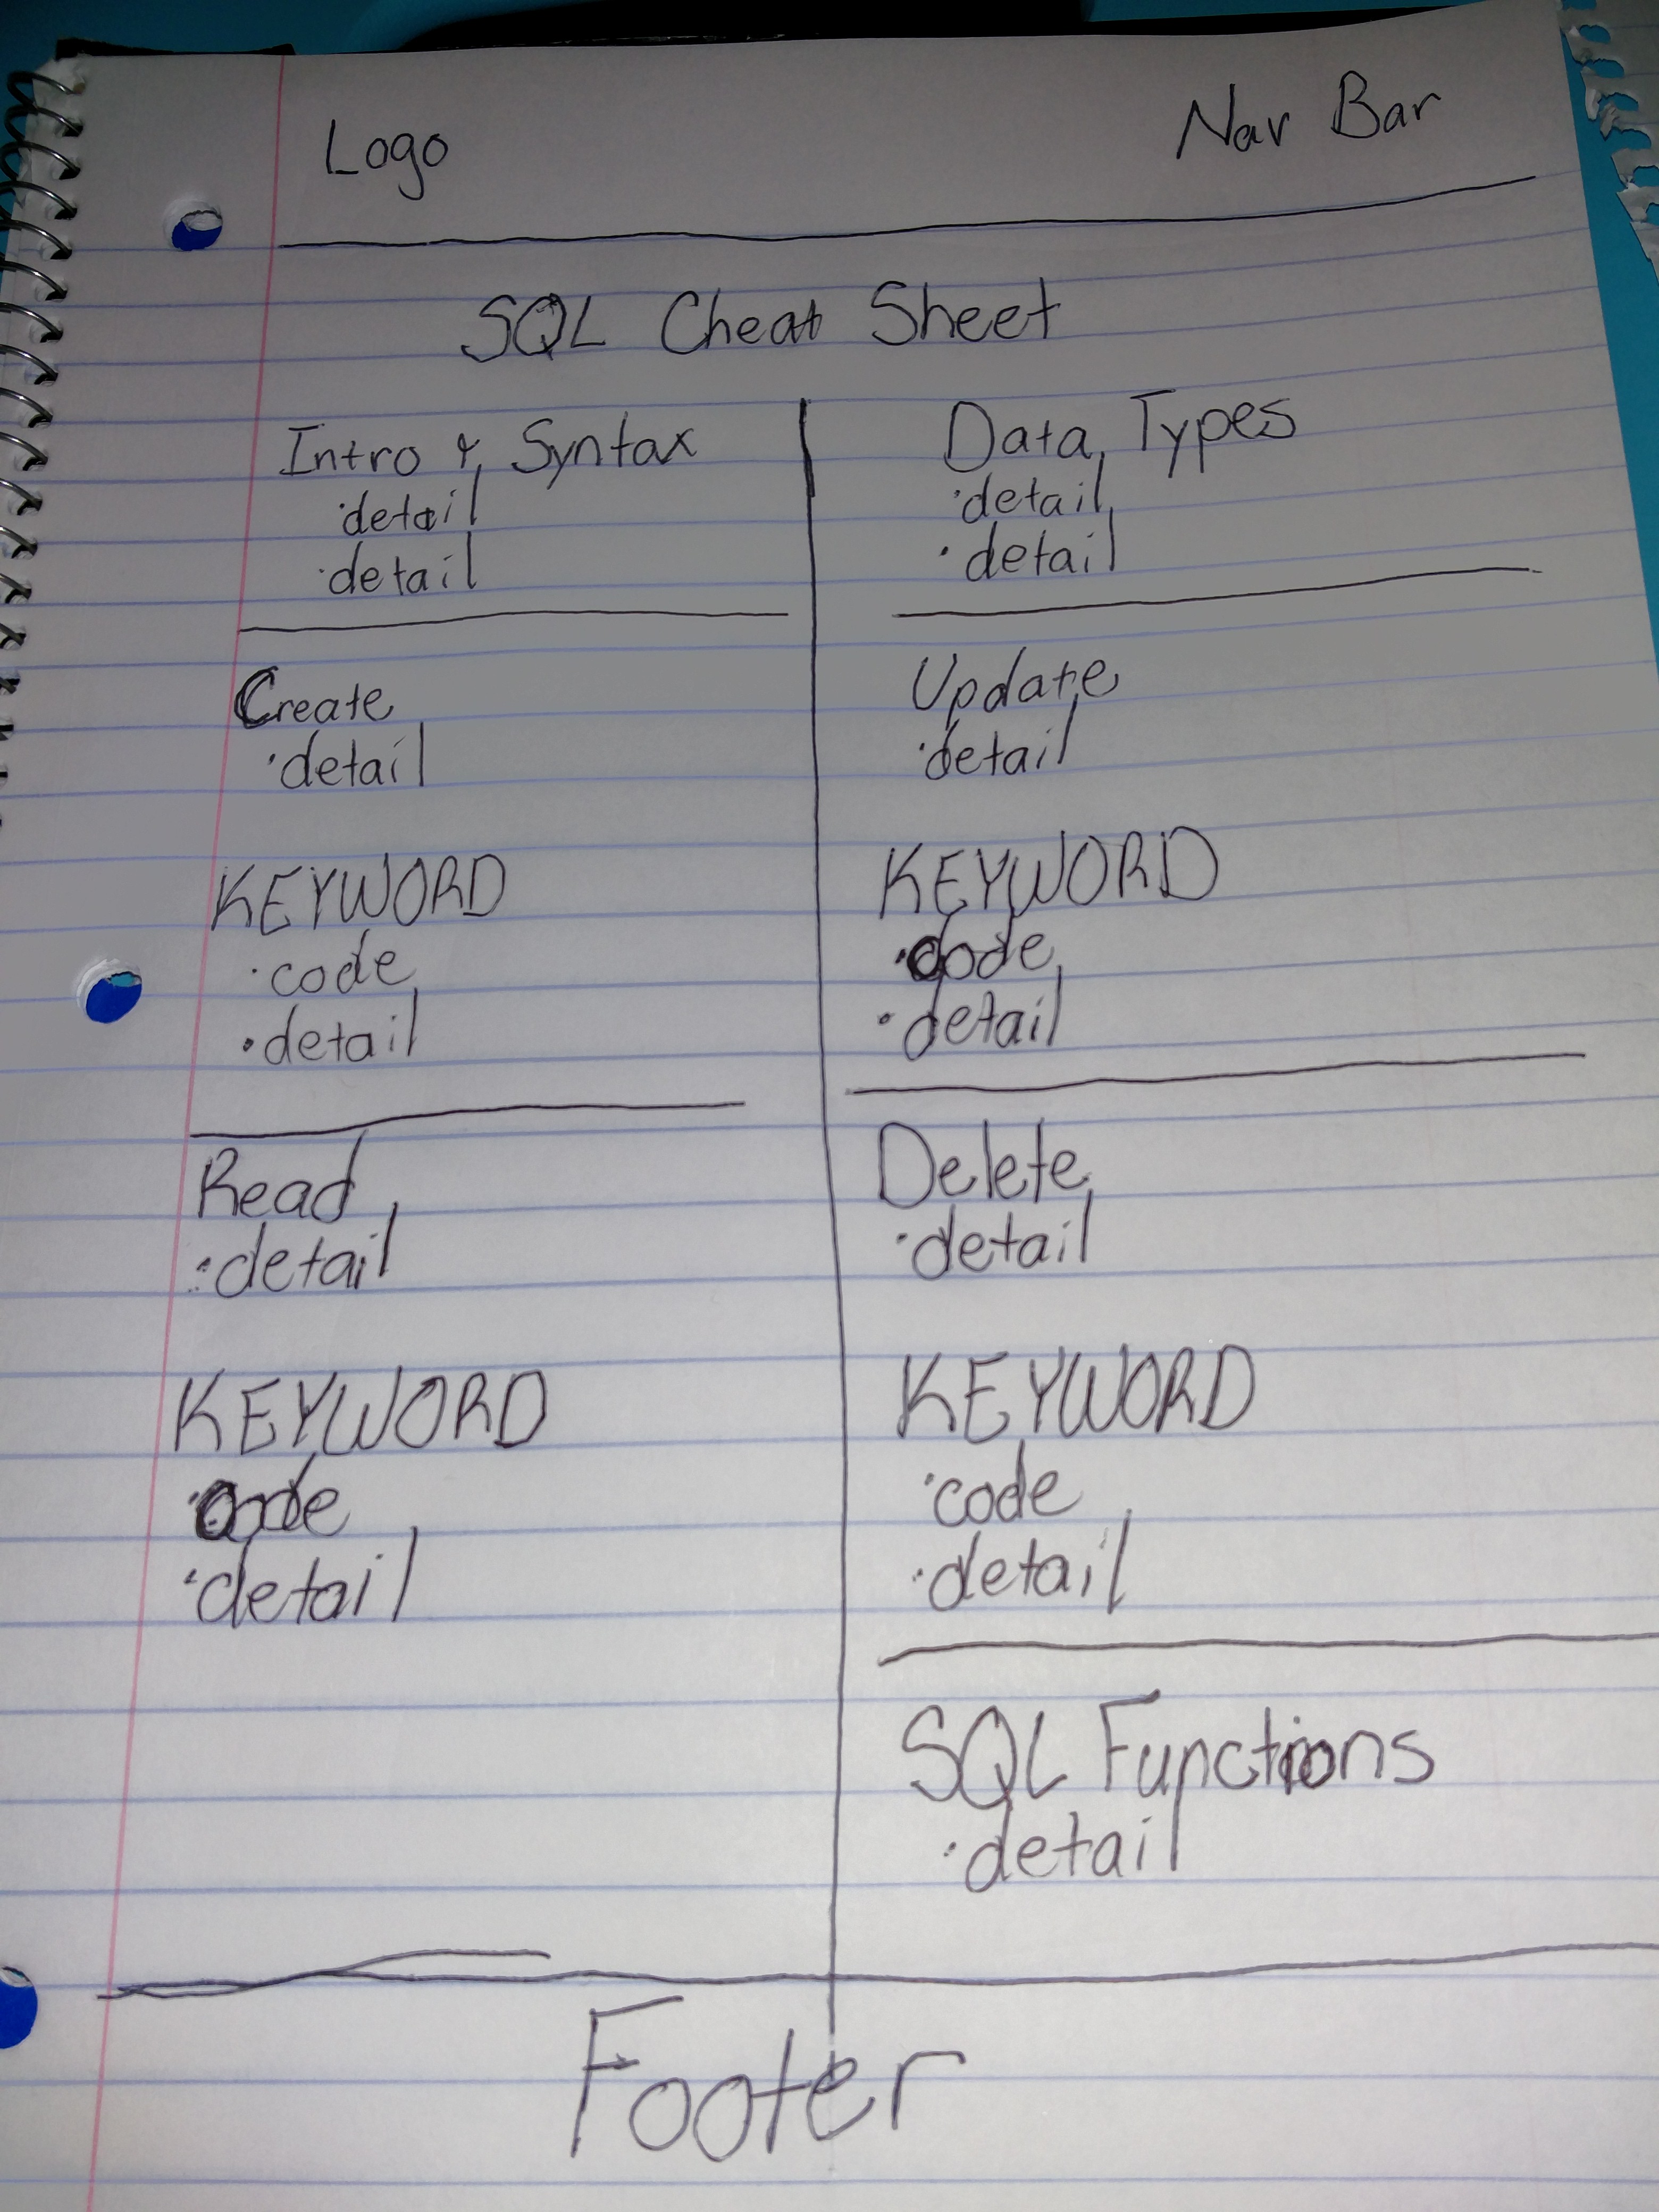 Logo
Nav Bar
SQL Cheat Sheet
Intro & Syntax
·detail
·detail
Create
·detail
KEYWORD
·code
·detail
Read
·detail
KEYWORD
·code
·detail
Data Types
·detail
·detail
Update
·detail
KEYWORD
·code
·detail
Delete
·detail
KEYWORD
·code
·detail
SQL Functions
·detail
Footer